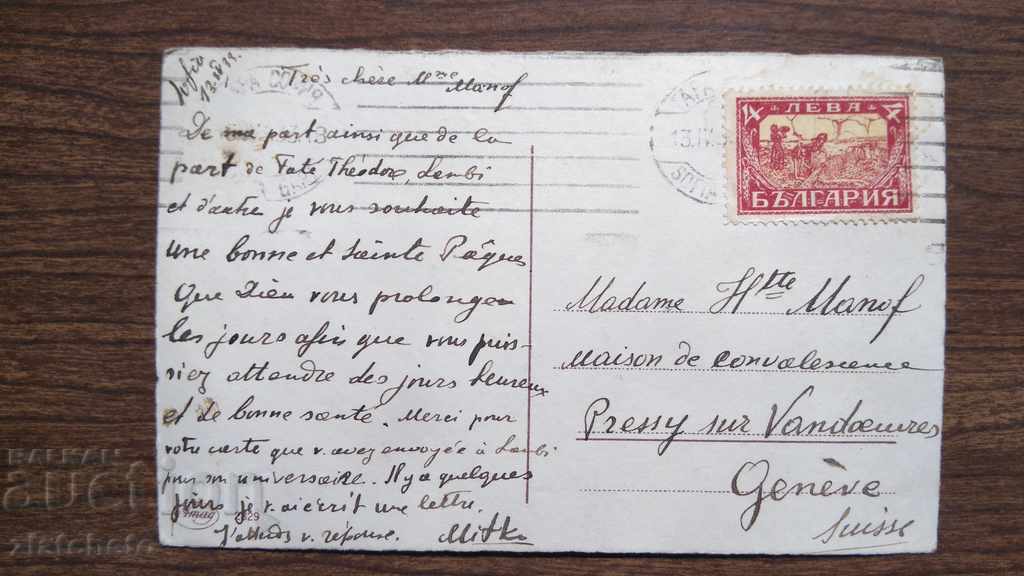 Sofia
Très chère Mme Manof
De ma part ainsi que de la
part de Taté Théodore, Lenbi
et d'autre je vous souhaite
une bonne et sainte Pâques
Que Dieu vous prolonge
les jours afin que vous puis-
siez attendre des jours heureux
et de bonne santé. Merci pour
votre carte que v. avez envoyée à Lenbi
pour son universaire. Il y a quelques
jours je v. ai écrit une lettre.
J'attends v. réponse. Mitko
4 ЛЕВА 4
БЪЛГАРИЯ
Madame Htte Manof
Maison de convalescence
Pressy sur Vandœuvres
Genève
Suisse
BALKAN
auction
zlatcheto